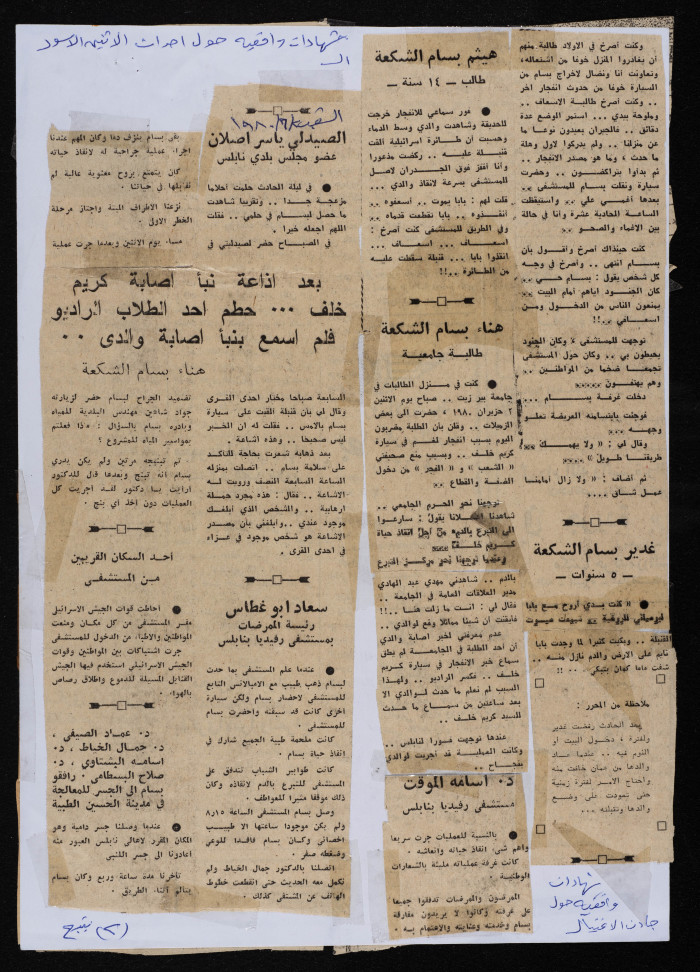 شهادات واقعية حول احداث الاثنين الاسود
وكنت أصرخ في الاولاد طالبة منهم
أن يغادروا المنزل خوفا من اشتعاله،
وتعاونت انا ونضال لاخراج بسام من
السيارة خوفا من حدوث انفجار آخر
.. وكنت أصرخ طالبة الاسعاف ..
وملوحة بيدي .. استمر الوضع عدة
دقائق .. فالجيران يبعدون نوعا ما
عن منزلنا .. ولم يدركوا لاول وهلة
ما حدث ، وما هو مصدر الانفجار ..
ثم بدأوا يتراكضون .. وحضرت
سيارة ونقلت بسام للمستشفى ..
بعدها أغمي علي .. واستيقظت
الساعة الحادية عشرة وأنا في حالة
بين الاغماء والصحو ..
كنت حينذاك أصرخ وأقول بأن
بسام انتهى .. وأصرخ في وجه
كل شخص يقول : بسام حي ..
كان الجنود اياهم أمام البيت ..
يمنعون الناس من الدخول ومن
اسعافي ..!!
توجهت للمستشفى لا وكان الجنود
يحيطون بي .. وكان حول المستشفى
تجمعا ضخما من المواطنين ..
وهم يهتفون
دخلت غرفة بسام ...
فوجئت بابتسامته العريضة تعلو
وجهه ...
وقال لي : « ولا يهمك
طريقنا طويل»
ثم أضاف : « ولا زال أمامنا
عمل شاق ....
غدير بسام الشكعة
— ٥ سنوات —
القنبلة .. وبكيت كثيرا لما وجدت بابا
نايم على الارض والدم نازل منه ..
شفت ماما كمان بتبكي .. !!
ملاحظة من المحرر :
بعد الحادث رفضت غدير
ولفترة ، دخول البيت او
النوم فيه .. عندما عاد
والدها من عمان خافت منه
واحتاج الامر لفترة زمنية
حتى تعودت على وضع
والدها وتقبلته ..
شهادات
واقعية حول
حادث الاغتيال
هيثم بسام الشكعة
طالب — ١٤ سنة —
فور سماعي للانفجار خرجت
للحديقة وشاهدت والدي وسط الدماء
وحسبت ان طائرة اسرائيلية ألقت
قنبلة عليه .. ركضت مذعورا
وانا اقفز فوق الجدران لاصل
للمستشفى بسرعة لانقاذ والدي ...
قلت لهم : بابا يموت .. أسعفوه ..
انقذوه .. بابا تقطعت قدماه ..
وفي الطريق للمستشفى كنت أصرخ :
اسعاف ... اسعاف ...
انقذوا بابا ... قنبلة سقطت عليه
من الطائرة ..!!
هناء بسام الشكعة
طالبة جامعية
كنت في منزل الطالبات في
جامعة بير زيت .. صباح يوم الاثنين
٢ حزيران ١٩٨٠ ، حضرت الي بعض
الزميلات .. وقلن بأن الطلبة مضربون
اليوم بسبب انفجار لغم في سيارة
كريم خلف .. وبسبب منع صحيفتي
« الشعب » و « الفجر » من دخول
الضفة والقطاع ..
توجهنا نحو الحرم الجامعي ..
شاهدنا اعلانا يقول : سارعوا
الى التبرع بالدم من أجل انقاذ حياة
كريم خلف
وعندما توجهنا نحو مركز التبرع
بالدم .. شاهدني مهدي عبد الهادي
مدير العلاقات العامة في الجامعة ..
فقال لي : أنت ما زلت هنا ..!!
فأيقنت أن شيئا مماثلا وقع لوالدي ..
عدم معرفتي لخبر اصابة والدي
أن احد الطلبة في الجامعة لم يطق
سماع خبر الانفجار في سيارة كريم
خلف .. فكسر الراديو .. ولهذا
السبب لم نعلم ما حدث لوالدي الا
بعد ساعتين من سماع ما حدث
للسيد كريم خلف ..
عندها توجهت فورا لنابلس ..
وكانت العملية قد أجريت لوالدي
بنجاح ...
د. اسامة الموقت
مستشفى رفيديا بنابلس
بالنسبة للعمليات جرت سريعا
واهم شيء انقاذ حياته وانعاشه .
كانت غرفة عملياته مليئة بالشعارات
الوطنية .
الممرضون والممرضات تدفقوا جميعا
على غرفته وكانوا لا يريدون مفارقة
بسام وخدمته وعنايته والاهتمام به .
الصيدلي ياسر اصلان
عضو مجلس بلدي نابلس
في ليلة الحادث حلمت أحلاما
مزعجة جدا .. وتقريبا شاهدت
ما حصل لبسام في حلمي .. فقلت
اللهم اجعله خيرا .
في الصباح حضر لصيدليتي في
بقي بسام ينزف دما وكان المهم عندنا
اجراء عملية جراحية له لانقاذ حياته
كان يتمتع بروح معنوية عالية لم
نقابلها في حياتنا .
نزعنا الاطراف الميتة واجتاز مرحلة
الخطر الاولى .
مساء يوم الاثنين وبعدها جرت عملية
بعد اذاعة نبأ اصابة كريم
خلف ... حطم احد الطلاب الراديو
فلم اسمع بنبأ اصابة والدى ..
هناء بسام الشكعة
السابعة صباحا مختار احدى القرى
وقال لي بأن قنبلة القيت على سيارة
بسام بالامس .. فقلت له ان الخبر
ليس صحيحا .. وهذه اشاعة .
بعد ذهابه شعرت بحاجة للتأكد
على سلامة بسام .. اتصلت بمنزله
الساعة السابعة والنصف ورويت له
الاشاعة .. فقال : هذه مجرد حملة
ارهابية .. والشخص الذي أبلغك
موجود عندي .. وأبلغني بأن مصدر
الاشاعة هو شخص موجود في عزاء
في احدى القرى .
سعاد ابو غطاس
رئيسة الممرضات
بمستشفى رفيديا بنابلس
عندما علم المستشفى بما حدث
لبسام ذهب طبيب مع الامبولانس التابع
للمستشفى لاحضار بسام ولكن سيارة
أخرى كانت قد سبقته وأحضرت بسام
للمستشفى .
كانت ملحمة طبية الجميع شارك في
انقاذ حياة بسام .
كانت طوابير الشباب تتدفق على
المستشفى للتبرع بالدم لانقاذه وكان
ذلك موقفا مثيرا للعواطف .
وصل بسام المستشفى الساعة ٨ر١٥
ولم يكن موجودا ساعتها الا طبيب
اخصائي وكان بسام فاقدا للوعي
وضغطه صفر .
اتصلنا بالدكتور جمال الخياط ولم
نكمل معه الحديث حتى انقطعت خطوط
الهاتف عن المشفى كذلك .
تضميد الجراح لبسام حضر لزيارته
جواد شاهين مهندس البلدية للمياه
وبادره بسام بالسؤال : ماذا فعلتم
بمواسير المياه للمشروع ؟
تم تبنيجه مرتين ولم يكن يدري
بسام انه تبنج وبعدها قال للدكتور
أرأيت يا دكتور لقد أجريت كل
العمليات دون أخذ أي بنج .
أحد السكان القريبين
من المستشفى
احاطت قوات الجيش الاسرائيلي
مقر المستشفى من كل مكان ومنعت
المواطنين والاطباء من الدخول للمستشفى
جرت اشتباكات بين المواطنين وقوات
الجيش الاسرائيلي استخدم فيها الجيش
القنابل المسيلة للدموع واطلاق رصاص
بالهواء .
د. عماد الصيفي ،
د. جمال الخياط ، د.
اسامه البشتاوي ، د.
صلاح البسطامي . رافقو
بسام الى الجسر للمعالجة
في مدينة الحسين الطبية
عندما وصلنا جسر دامية وهو
المكان المقرر لاهالي نابلس العبور منه
أعادونا الى جسر اللنبي
تأخرنا مدة ساعة وربع وكان بسام
يتألم أثناء الطريق .
(٢) يتبع